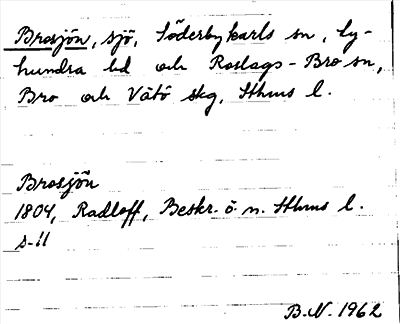 Brosjön, sjö, Söderbykarls sn, Ly-
hundra hd och Roslags-Bro sn,
Bro och Vätö skg, Sthms l.
Brosjön
1804, Radloff, Beskr. ö. n. Sthms l.
s. 11
B.N. 1962